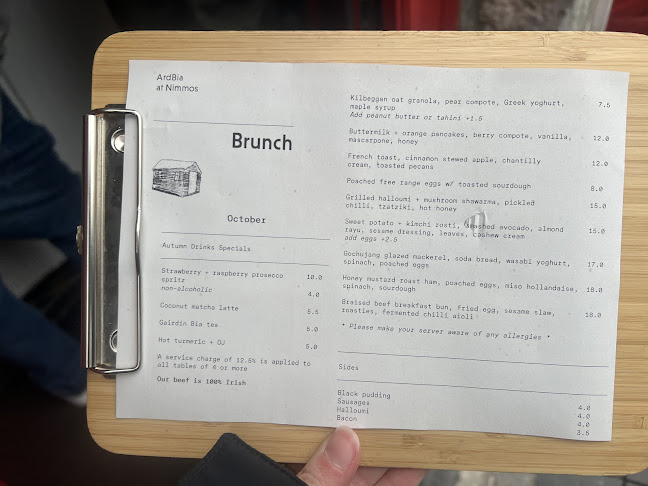 ArdBia
at Nimmos
Brunch
October
Autumn Drinks Specials
Strawberry + raspberry prosecco 10.0
spritz
non-alcoholic 4.0
Coconut matcha latte 5.5
Gairdín Bia tea 5.0
Hot turmeric + OJ 5.0
A service charge of 12.5% is applied to
all tables of 6 or more
Our beef is 100% Irish
Kilbeggan oat granola, pear compote, Greek yoghurt, 7.5
maple syrup
Add peanut butter or tahini +1.5
Buttermilk + orange pancakes, berry compote, vanilla, 12.0
mascarpone, honey
French toast, cinnamon stewed apple, chantilly 12.0
cream, toasted pecans
Poached free range eggs w/ toasted sourdough 8.0
Grilled halloumi + mushroom shawarma, pickled 15.0
chilli, tzatziki, hot honey
Sweet potato + kimchi rosti, smashed avocado, almond 15.0
rayu, sesame dressing, leaves, cashew cream
add eggs +2.5
Gochujang glazed mackerel, soda bread, wasabi yoghurt, 17.0
spinach, poached eggs
Honey mustard roast ham, poached eggs, miso hollandaise, 18.0
spinach, sourdough
Braised beef breakfast bun, fried egg, sesame slaw, 18.0
roasties, fermented chilli aioli
* Please make your server aware of any allergies *
Sides
Black pudding 4.0
Sausages 4.0
Halloumi 4.0
Bacon 3.5